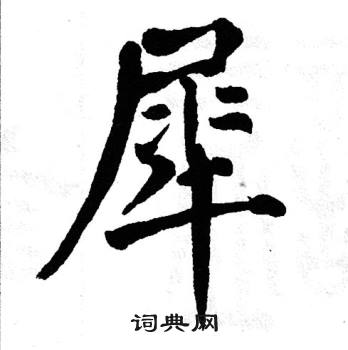 犀
词典网